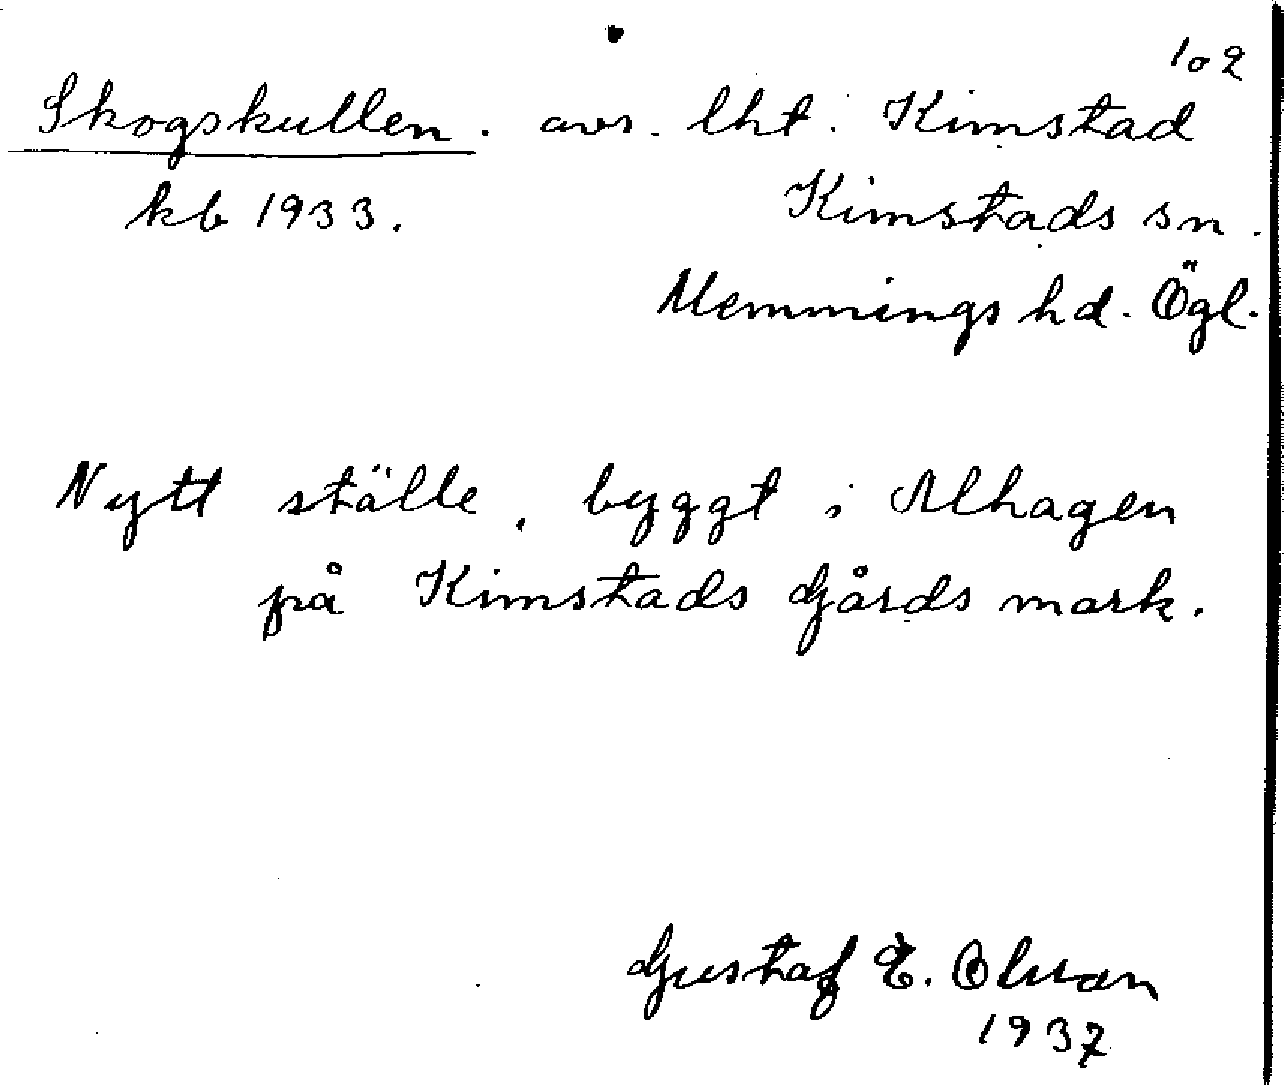 102
Skogskullen. avs. lht. Kimstad
kb 1933. Kimstads sn.
Memmings hd. Ögl.
Nytt ställe, byggt i Alhagen
på Kimstads Gårds mark.
Gustaf E. Olsson
1937